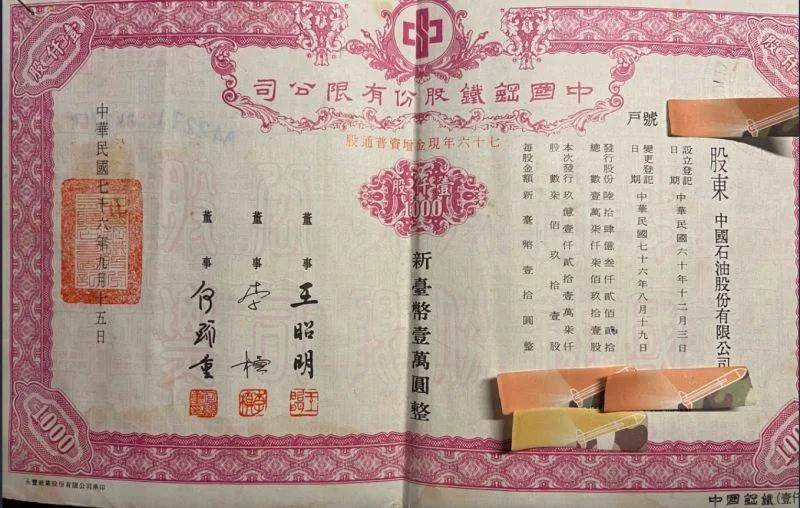 壹仟股
中國鋼鐵股份有限公司
七十六年現金增資普通股
壹仟股
1000
新臺幣壹萬圓整
戶號
股東 中國石油股份有限公司
設立登記日期 中華民國六十年十二月三日
變更登記日期 中華民國七十六年八月十九日
發行股份總數 陸拾肆億叁仟貳佰貳拾壹萬柒仟柒佰玖拾壹股
本次發行股數 玖億壹仟貳拾壹萬柒仟柒佰玖拾壹股
每股金額 新臺幣壹拾圓整
董事 王昭明
董事 李
董事
中華民國七十六年九月十五日
1000
永豐紙業股份有限公司承印
中國鋼鐵(壹仟